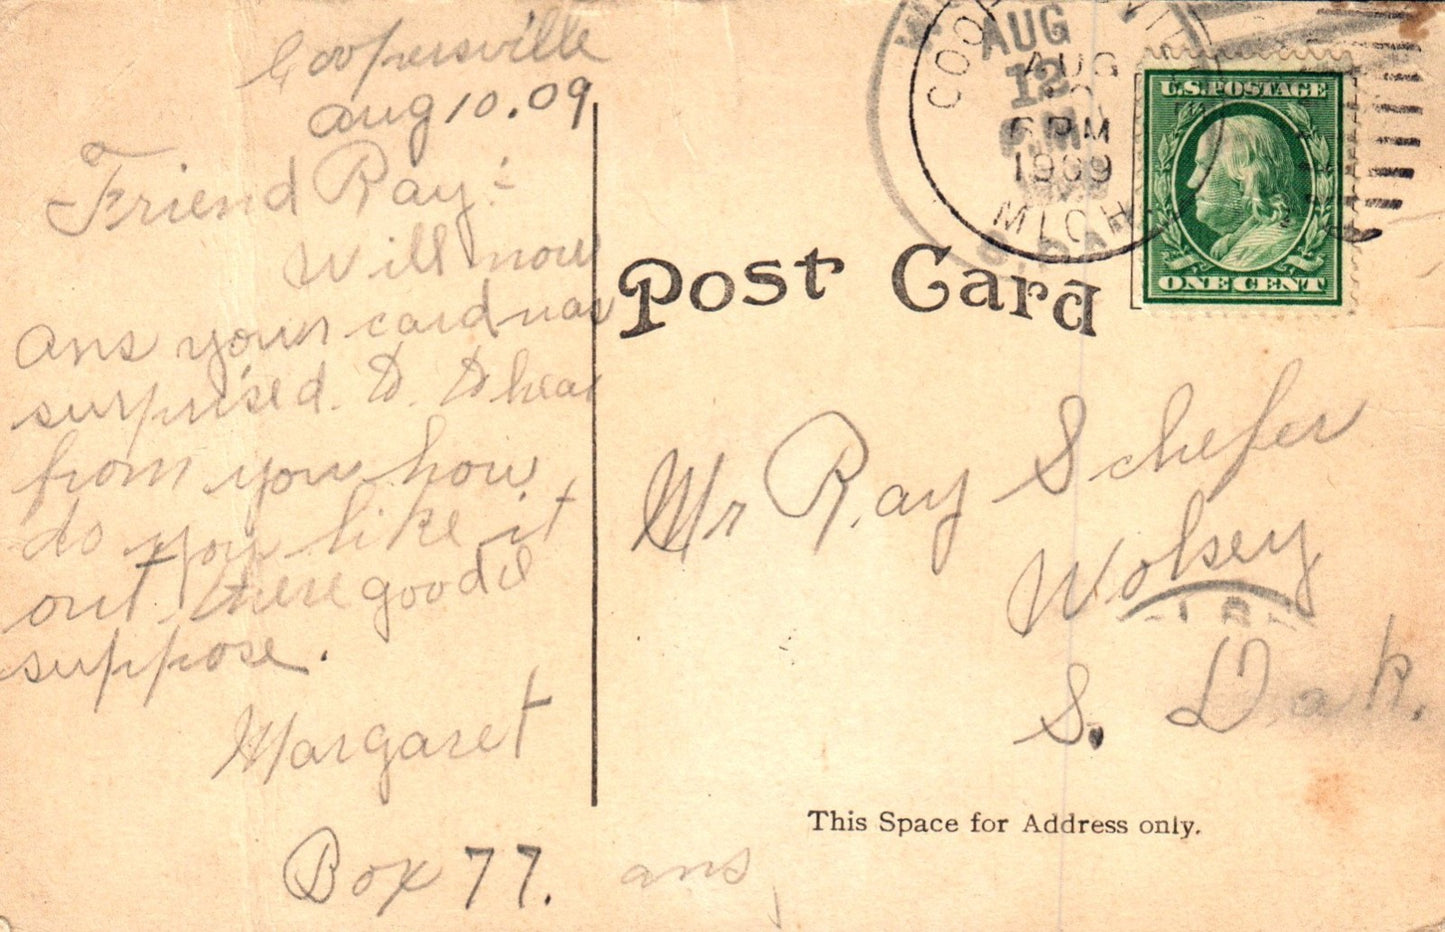 Coopersville
Aug 10. 09
Friend Ray:
Will now
ans your card was
surprised. to to hear
from you how
do you like it
out there good I
suppose.
Margaret
Box 77. ans
AUG
12
AUG
6 PM
1909
MICH
U.S. POSTAGE
ONE CENT
Post Card
Mr Ray Schefer
Wolsey
S. Dak.
This Space for Address only.